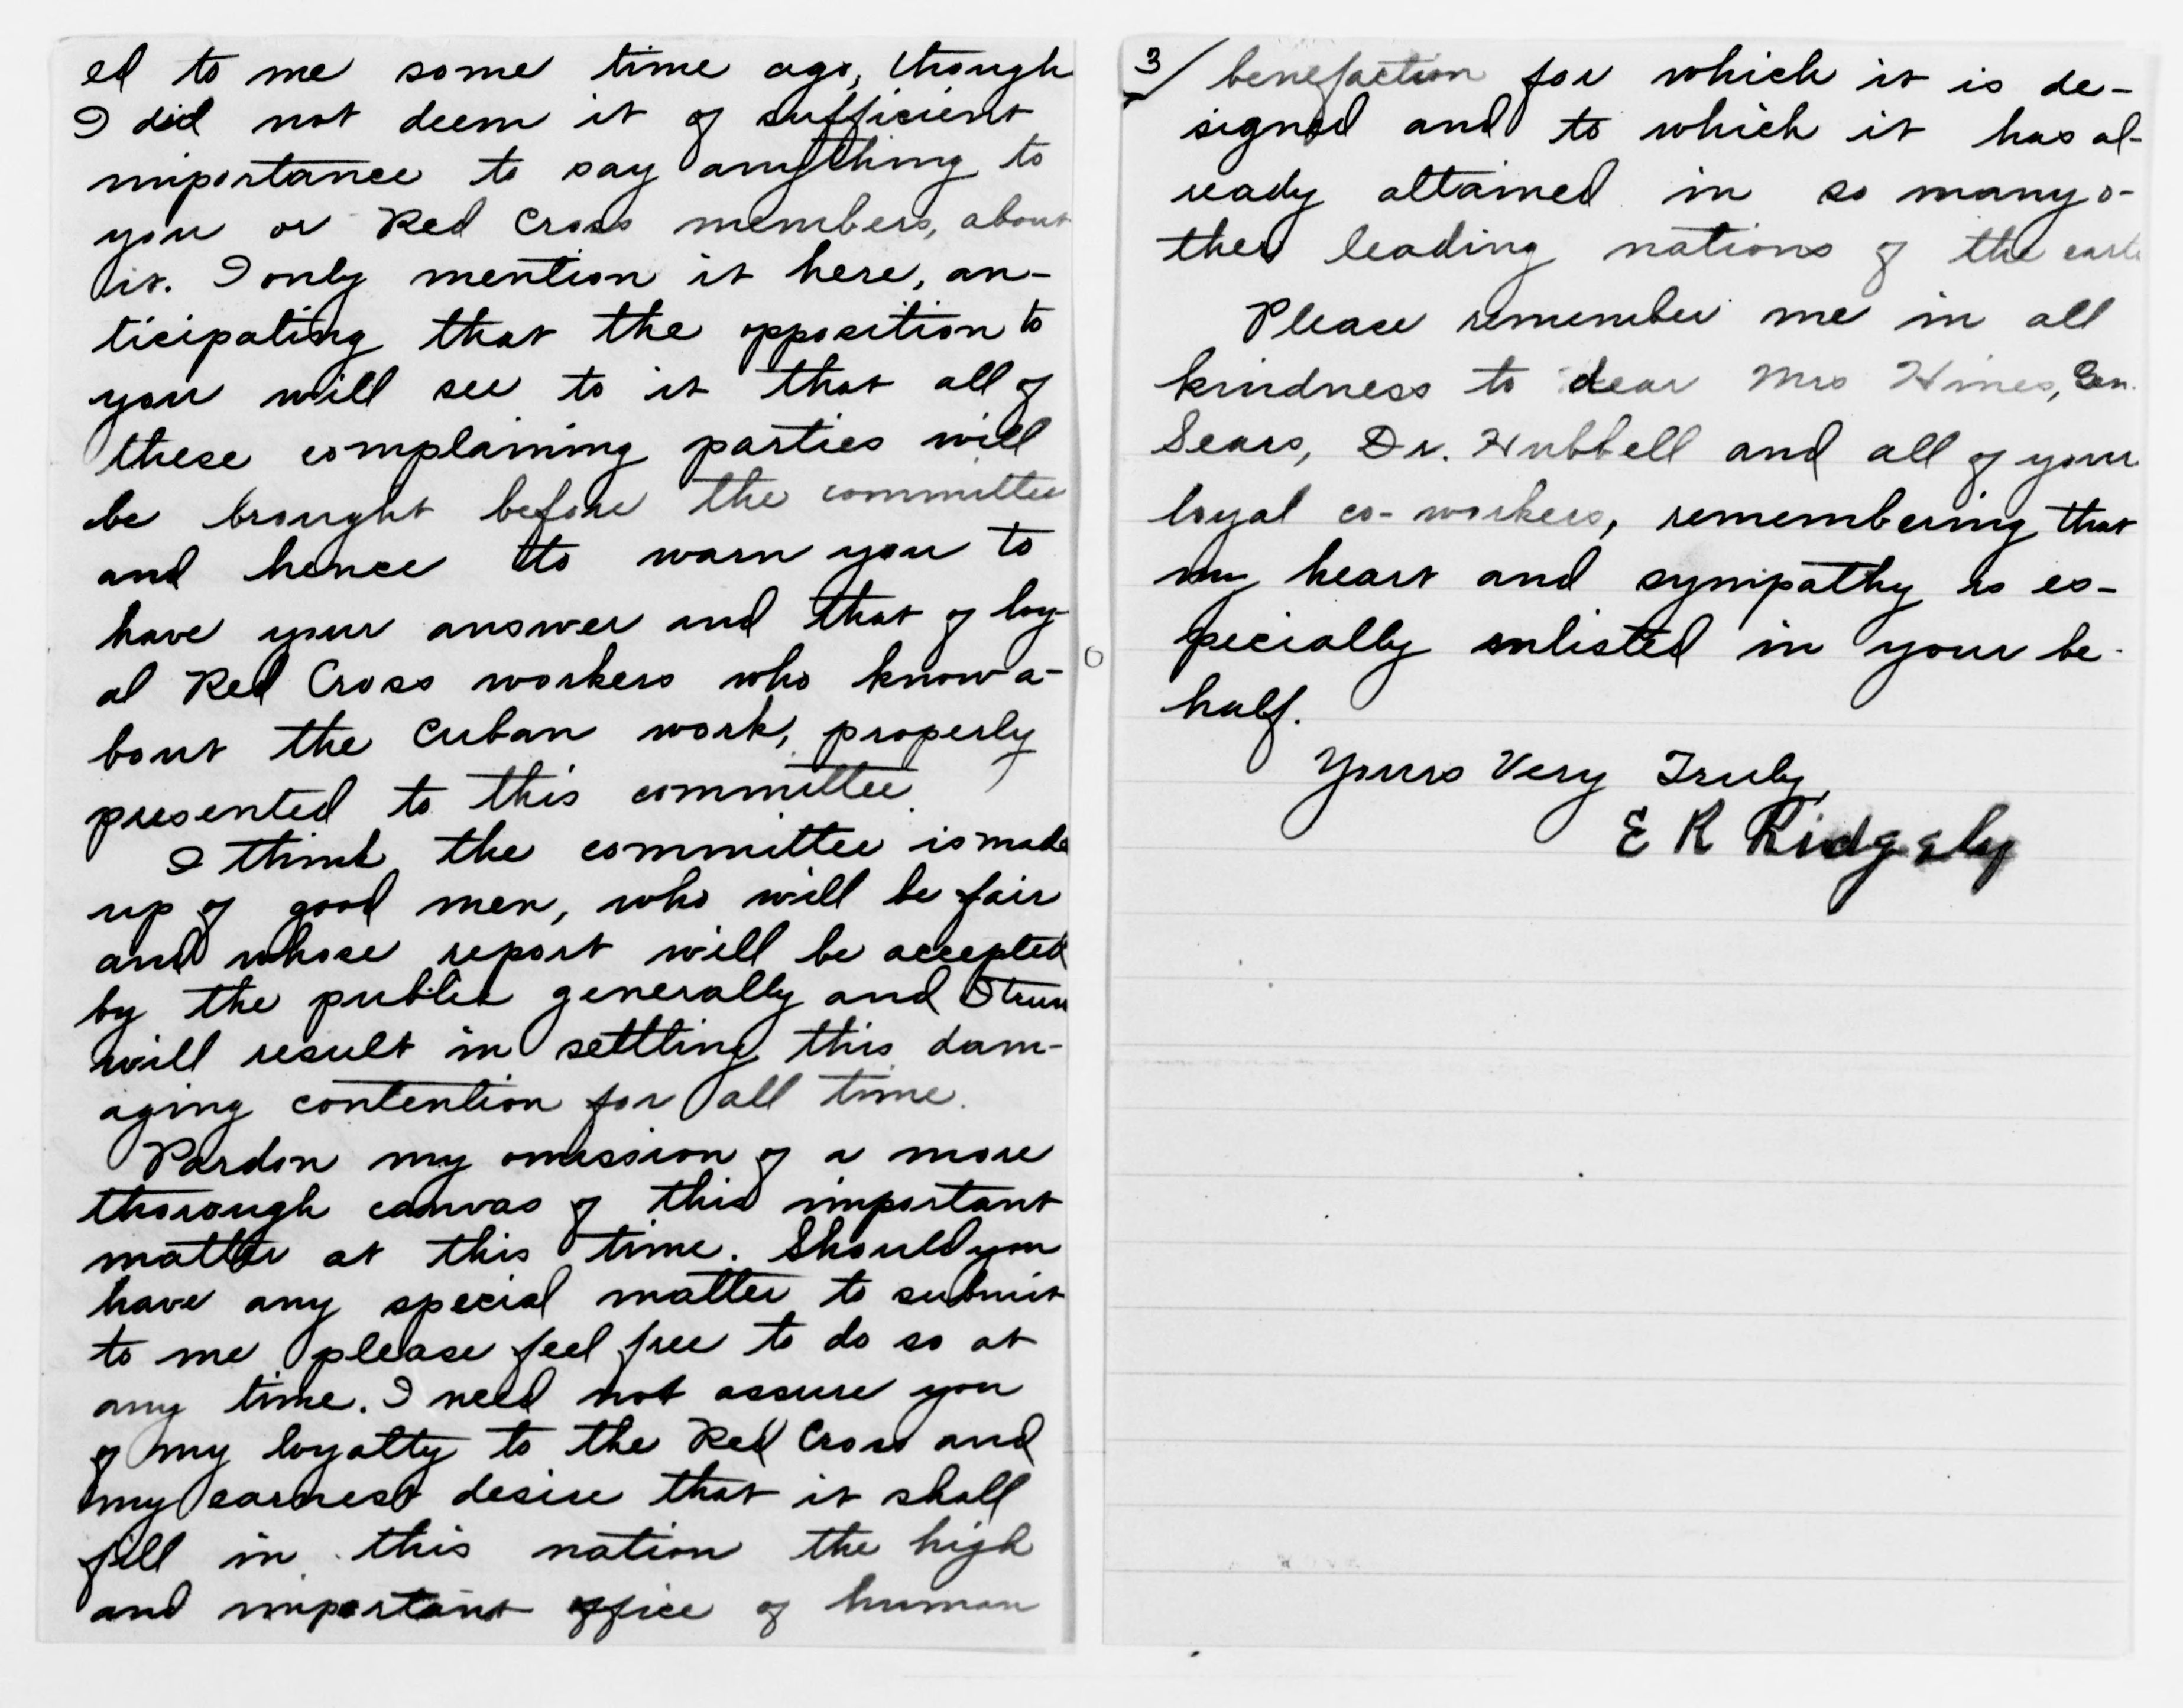 ed to me some time ago, though
I did not deem it of sufficient
importance to say anything to
you or Red Cross members, about
it. I only mention it here, an-
ticipating that the opposition to
you will see to it that all of
these complaining parties will
be brought before the committee
and hence to warn you to
have your answer and that of loy-
al Red Cross workers who know a-
bout the Cuban work, properly
presented to this committee.
I think the committee is made
up of good men, who will be fair
and whose report will be accepted
by the public generally and I trust
will result in settling this dam-
aging contention for all time.
Pardon my omission of a more
thorough canvas of this important
matter at this time. Should you
have any special matter to submit
to me please feel free to do so at
any time. I need not assure you
of my loyalty to the Red Cross and
my earnest desire that it shall
fill in this nation the high
and important office of human
3/ benefaction for which it is de-
signed and to which it has al-
ready attained in so many o-
ther leading nations of the earth
Please remember me in all
kindness to dear Mrs Hines, Gen.
Sears, Dr. Hubbell and all of your
loyal co-workers, remembering that
my heart and sympathy is es-
pecially enlisted in your be-
half.
Yours Very Truly,
E R Ridgely